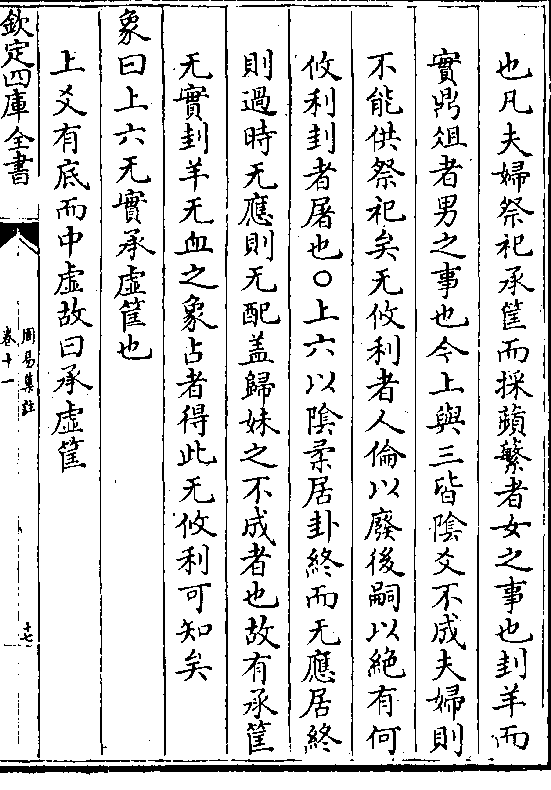 也凡夫婦祭祀承筐而採蘋蘩者女之事也刲羊而
實鼎俎者男之事也今上與三皆陰爻不成夫婦則
不能供祭祀矣无攸利者人倫以廢後嗣以絶有何
攸利刲者屠也○上六以陰柔居卦終而无應居終
則過時无應則无配蓋歸妹之不成者也故有承筐
无實刲羊无血之象占者得此无攸利可知矣
象曰上六无實承虛筐也
上爻有底而中虛故曰承虛筐
欽定四庫全書
周易集註
卷十一
十七